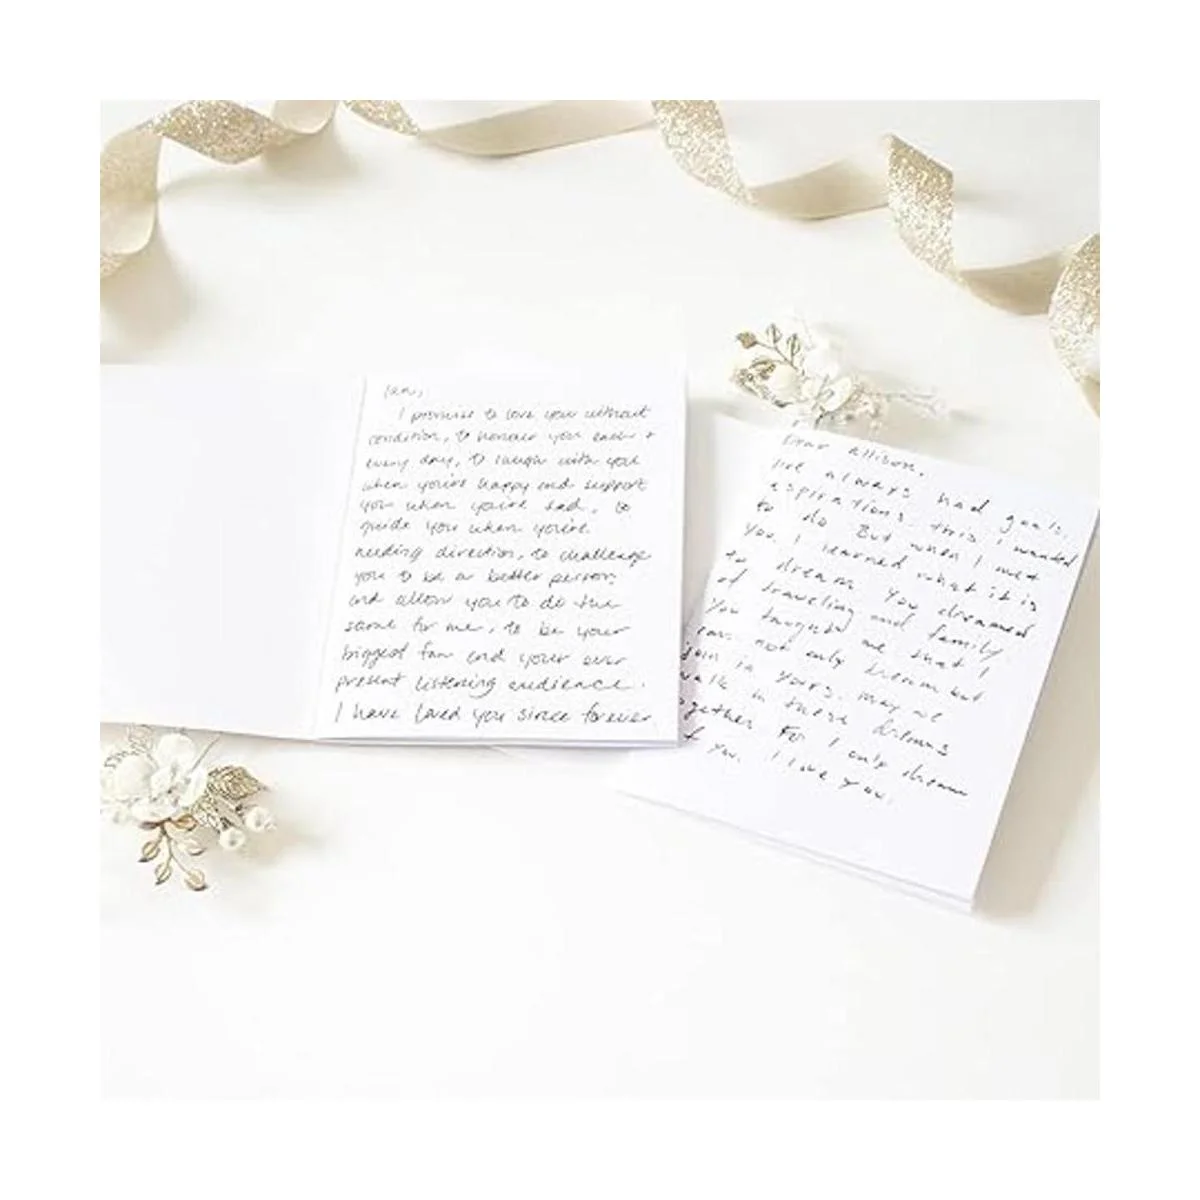 Ian,
I promise to love you without
condition, to honour you each +
every day, to laugh with you
when you're happy and support
you when you're sad, to
guide you when you're
needing direction, to challenge
you to be a better person
and allow you to do the
same for me, to be your
biggest fan and your ever
present listening audience.
I have loved you since forever
Dear Allison,
I've always had goals,
aspirations, this I wanted
to do. But when I met
you, I learned what it is
to dream. You dreamed
of traveling and family.
You taught me that I
can not only dream but
join in yours. May we
walk in those dreams
together for I only dream
of you. I love you.